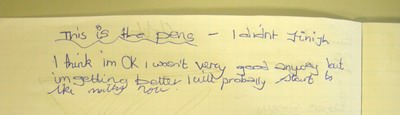 This is the pens - I didnt finish
I think im OK I wasn't very good anyway but
im getting better I will probally start to
like maths now.